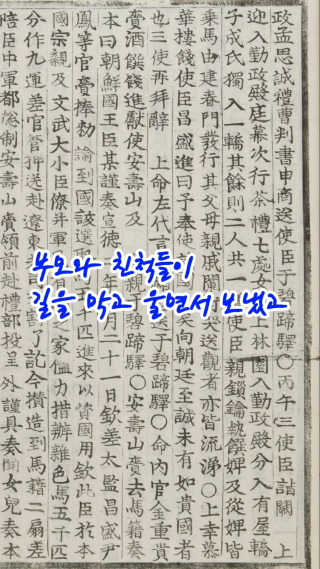 政孟思誠禮曹判書申商送使臣于碧蹄驛○丙午三使臣詣闕 上
迎入勤政殿庭幕次行茶禮七處女上林園入勤政殿分入有屋轎
子成氏獨入一轎其餘則二人共一使臣親鎖鑰執饌婢及從婢皆
乘馬由建春門發行其父母親戚闌街哭送觀者亦皆流涕○上幸慕
華樓餞使臣昌盛進曰予奉使國矣向朝廷至誠未有如貴國者
也三使再拜辭 上命左代言送于碧蹄驛○命内官金重貴
賫酒饌餞進獻使安壽山及親于碧蹄驛○安壽山賫去馬籍奏
本曰朝鮮國王臣其謹奏宣德年月二十一日欽差太監昌盛尹
鳳等官賫捧勑 諭到國該選千匹進來以資國用欽此臣於本
國宗親及文武大小臣僚并軍有之家儘力措辦雜色馬五千匹
分作九運差官管押送赴遼東割了訖今攢造到馬籍二扇差
陪臣中軍都惣制安壽山賫領前赴禮部投呈外謹具奏聞女兒奏本
부모와 친척들이
길을 막고 울면서 보냈고